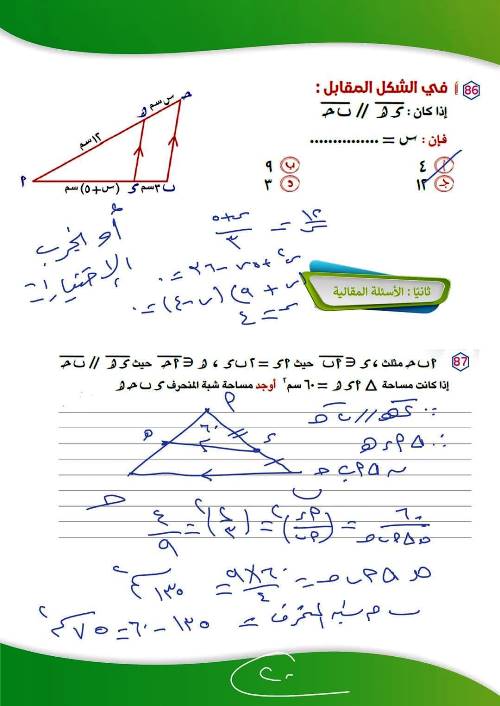 86 في الشكل المقابل :
إذا كان : ‎ءه // ب‍ح
فإن : س = ...............
أ ٤ ب ٩
ج ١٢ د ٣
س سم
١٢ سم
(س+٥) سم
٣ سم
س+٥ / ٣ = ١٢ / س
س٢ + ٥س - ٣٦ = ٠
(س + ٩) (س - ٤) = ٠
س = ٤
أو الجرب
الإختيارات
ثانيًا : الأسئلة المقالية
87 أ ب ح مثلث ، ء ∈ أب حيث أء = ٢ ب ء ، ه ∈ أح حيث ءه // ب‍ح
إذا كانت مساحة Δ أ ء ه = ٦٠ سم٢ أوجد مساحة شبة المنحرف ء ب ح ه
∵ ءه // ب ح
∴ Δ أ ء ه
~ Δ أ ب ح
٦٠ / م Δ أ ب ح = (أء / أب)٢ = (٢ / ٣)٢ = ٤ / ٩
م Δ أ ب ح = ٦٠ × ٩ / ٤ = ١٣٥ سم٢
∴ م شبه المنحرف = ١٣٥ - ٦٠ = ٧٥ سم٢
٢٠